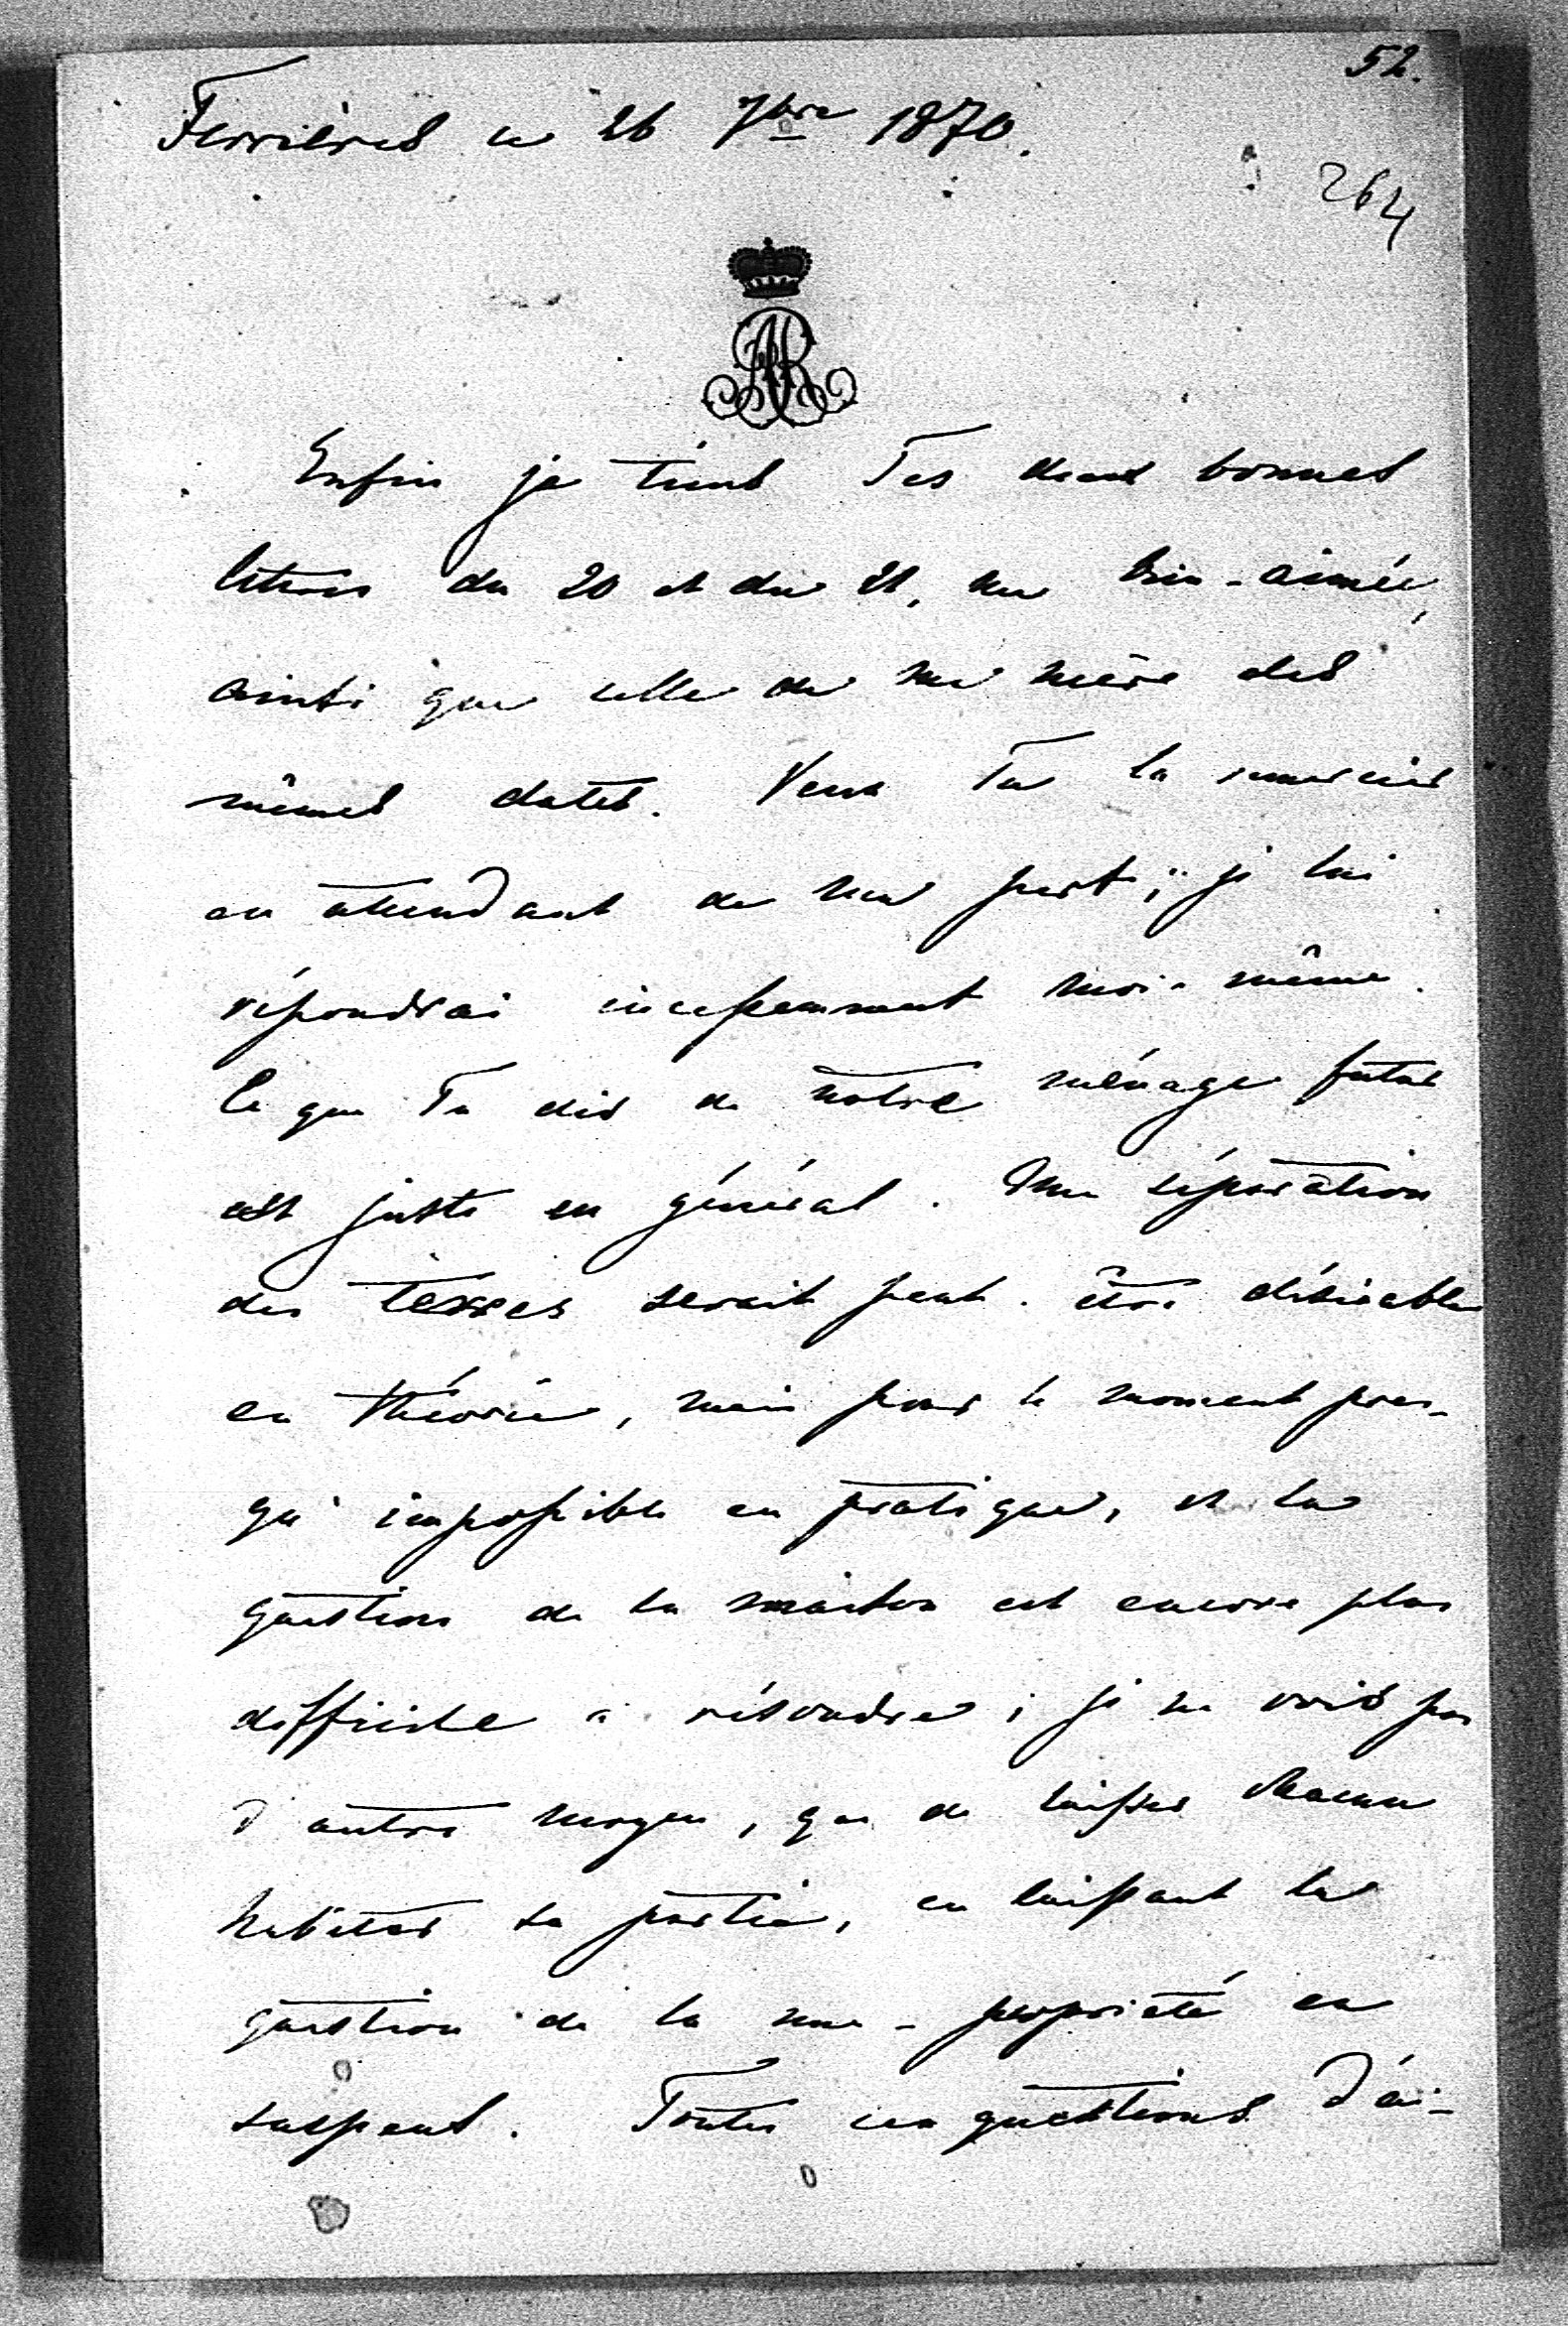 52.
Ferrières ce 26 7bre 1870.
264
AR
Enfin je tiens Tes deux bonnes
lettres du 20 et du 21, ma bien-aimée,
ainsi que celle de ma mère des
mêmes dates. Veux Tu la remercier
en attendant de ma part; je lui
répondrai incessamment moi-même.
Ce que Tu dis de notre ménage futur
est juste en général. Une séparation
des terres serait peut-être désirable
en théorie, mais pour le moment pres-
qu'impossible en pratique, et la
question de la maison est encore plus
difficile à résoudre; je ne vois pas
d'autre moyen, que de laisser chacun
habiter sa partie, en laissant la
question de la nue-propriété en
suspens. Toutes ces questions d'ai-